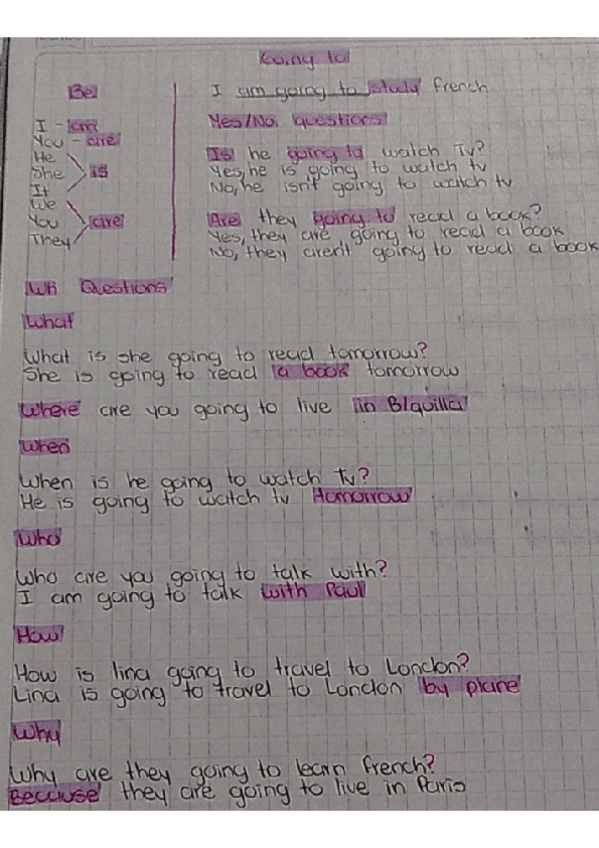 Going to
Be
I - am
You - are
He
She
is
It
We
You
are
They
I am going to study French
Yes/No questions
Is he going to watch Tv?
Yes, he is going to watch tv
No, he isn't going to watch tv
Are they going to read a book?
Yes, they are going to read a book
No, they aren't going to read a book
Wh Questions
What
What is she going to read tomorrow?
She is going to read a book tomorrow
Where are you going to live in B/quilla
When
When is he going to watch Tv?
He is going to watch tv tomorrow
Who
Who are you going to talk with?
I am going to talk with Paul
How
How is lina going to travel to London?
Lina is going to travel to London by plane
Why
Why are they going to learn french?
Because they are going to live in Paris